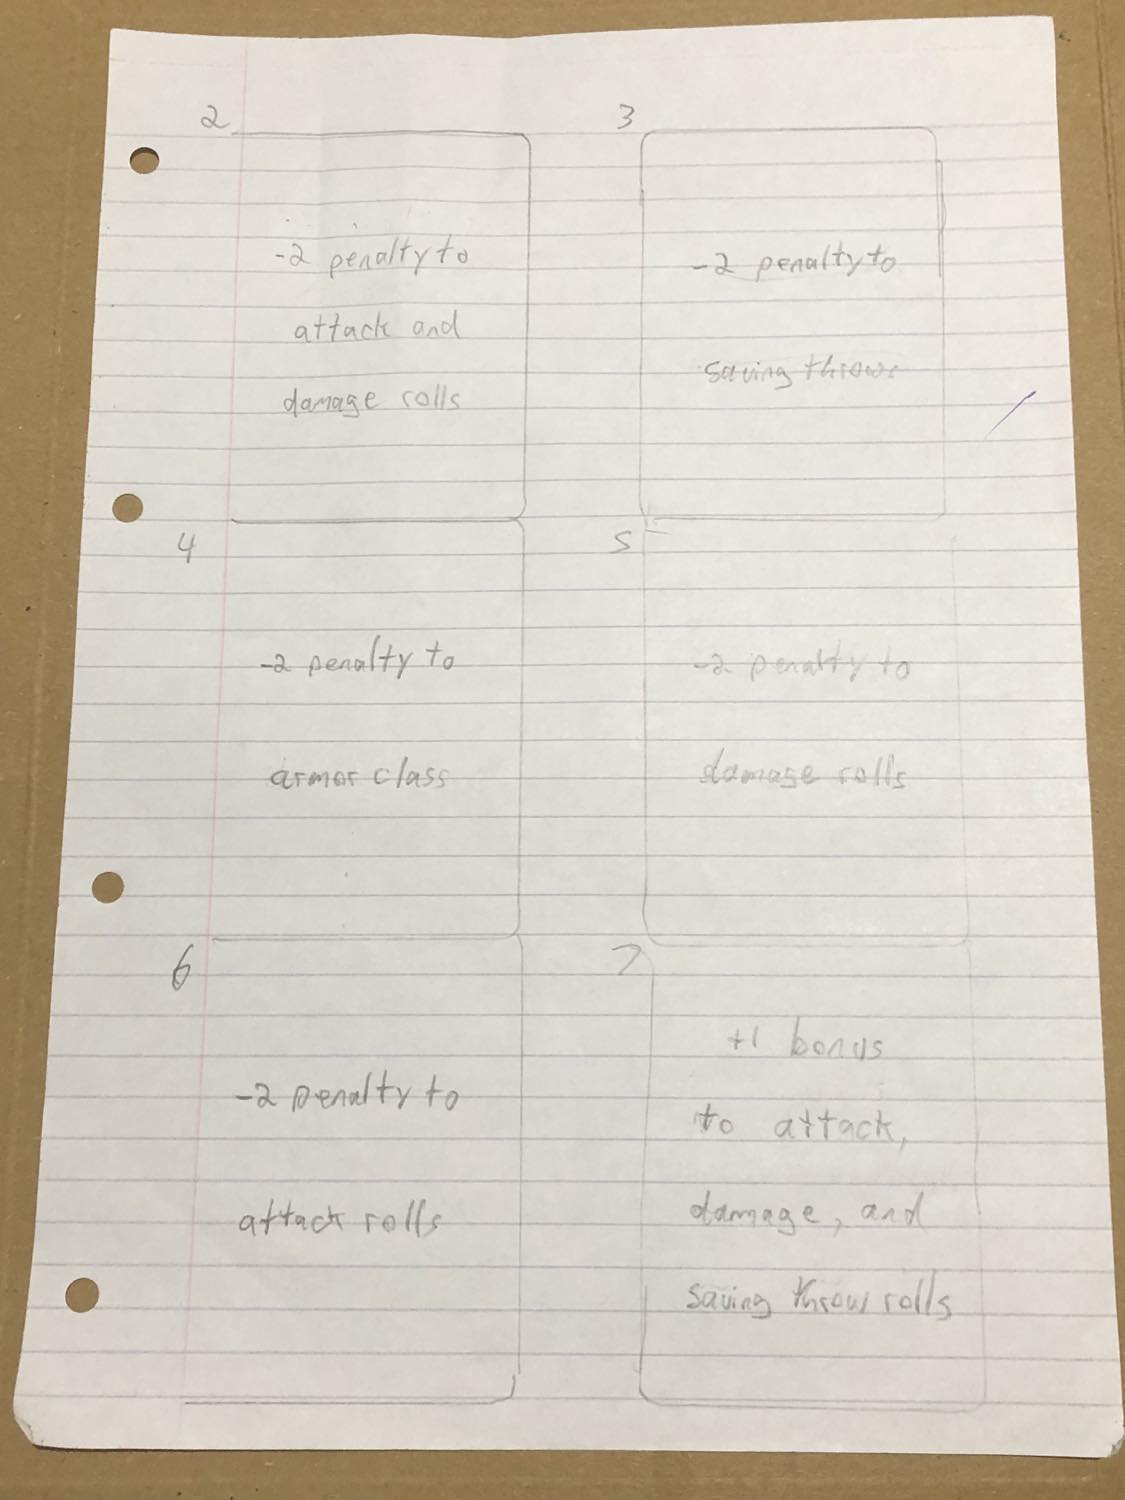 2
-2 penalty to
attack and
damage rolls
3
-2 penalty to
saving throws
4
-2 penalty to
armor class
5
-2 penalty to
damage rolls
6
-2 penalty to
attack rolls
7
+1 bonus
to attack,
damage, and
saving throw rolls